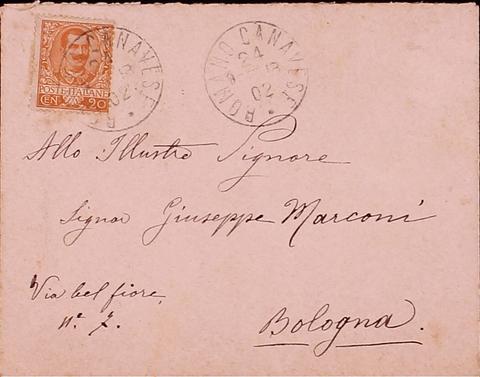 POSTE ITALIANE
CEN 20
ROMANO CANAVESE
24
8
02
Allo Illustro Signore
Signor Giuseppe Marconi
Via bel fiore,
nº 7.
Bologna.